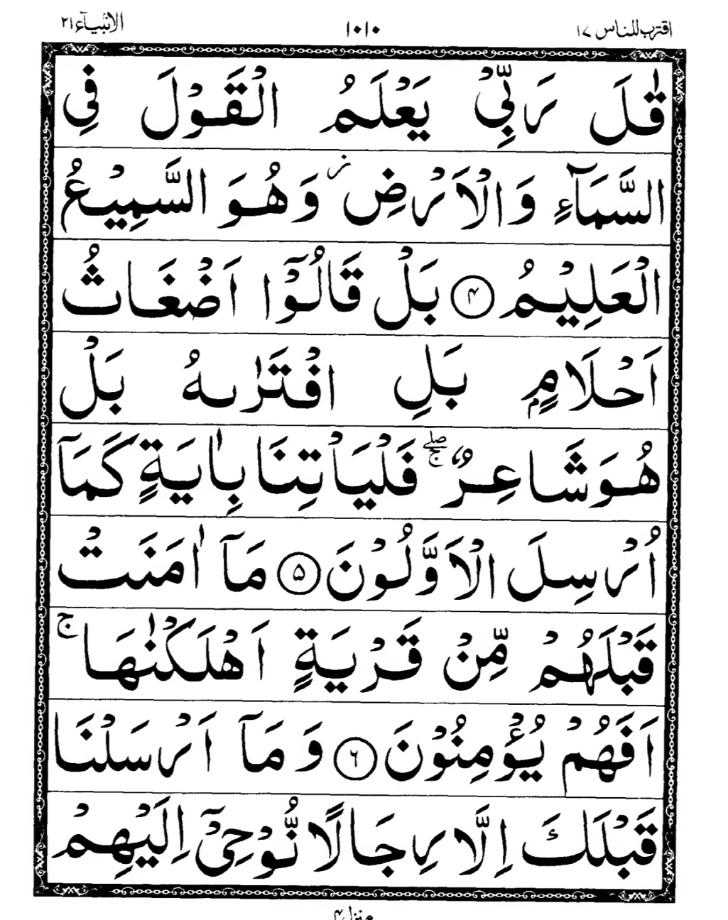 اقترب للناس ١٧ ١٠١٠ الانبيآء ٢١
قٰلَ رَبِّیْ یَعْلَمُ الْقَوْلَ فِی
السَّمَآءِ وَالْاَرْضِ ز وَهُوَ السَّمِیْعُ
الْعَلِیْمُ ۴ بَلْ قَالُوْۤا اَضْغَاثُ
اَحْلَامٍ بَلِ افْتَرٰىهُ بَلْ
هُوَ شَاعِرٌ ۚۖ فَلْیَاْتِنَا بِاٰیَةٍ كَمَاۤ
اُرْسِلَ الْاَوَّلُوْنَ ۵ مَاۤ اٰمَنَتْ
قَبْلَهُمْ مِّنْ قَرْیَةٍ اَهْلَكْنٰهَا ۚ
اَفَهُمْ یُؤْمِنُوْنَ ۶ وَ مَاۤ اَرْسَلْنَا
قَبْلَكَ اِلَّا رِجَالًا نُّوْحِیْۤ اِلَیْهِمْ
منزل ۴